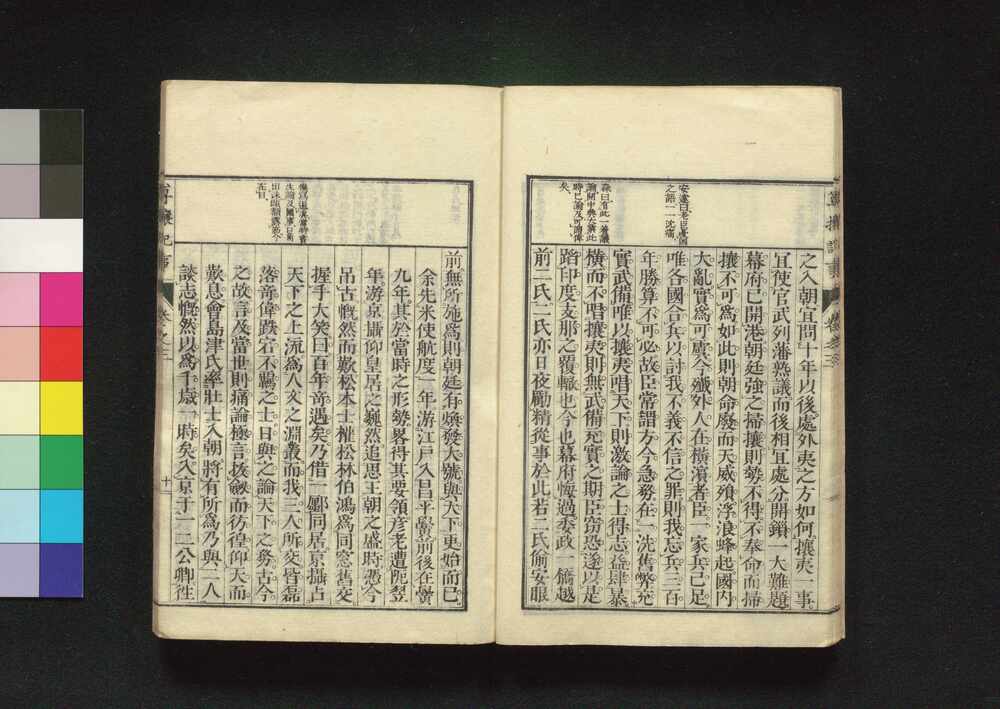 之入朝宜問十年以後處外夷之方如何攘夷一事
宜使官武列藩熟議而後相宜處分開鎖一大難題
幕府已開港朝廷強之掃攘則勢不得不奉命而掃
攘不可為如此則朝命廢而天威殞浮浪蜂起國內
大亂實為可慮今殲外人在橫濱者臣一家兵已足
唯各國合兵以討我不義不信之罪則我忘兵三百
年勝算不可必故臣常謂方今急務在一洗舊弊充
實武備唯以攘夷唱天下則激論之士得志益肆暴
橫而不唱攘夷則無武備充實之期臣竊恐遂以是
蹈印度支那之覆轍也今也幕府悔過委政一橋越
前二氏二氏亦日夜勵精從事於此若二氏偷安眼
前無所施為則朝廷有煥發大號與天下更始而已
余先米使航度一年游江戶入昌平黌前後在黌
九年其於當時之形勢畧得其要領彥老遭阨翌
年游京攝仰皇居之巍然追思王朝之盛時憑今
吊古慨然而歎松本士權松林伯鴻為同窓舊交
握手大笑曰百年奇遇矣乃借一鄽同居京攝占
天下之上流為人文之淵叢而我三人所交皆磊
落奇偉跌宕不羈之士日與之論天下之務古今
之故言及當世則痛論極言扼劔而彷徨仰天而
歎息會島津氏率壯士入朝將有所為乃與二人
談志慨然以為千歲一時矣入京于一二公卿往